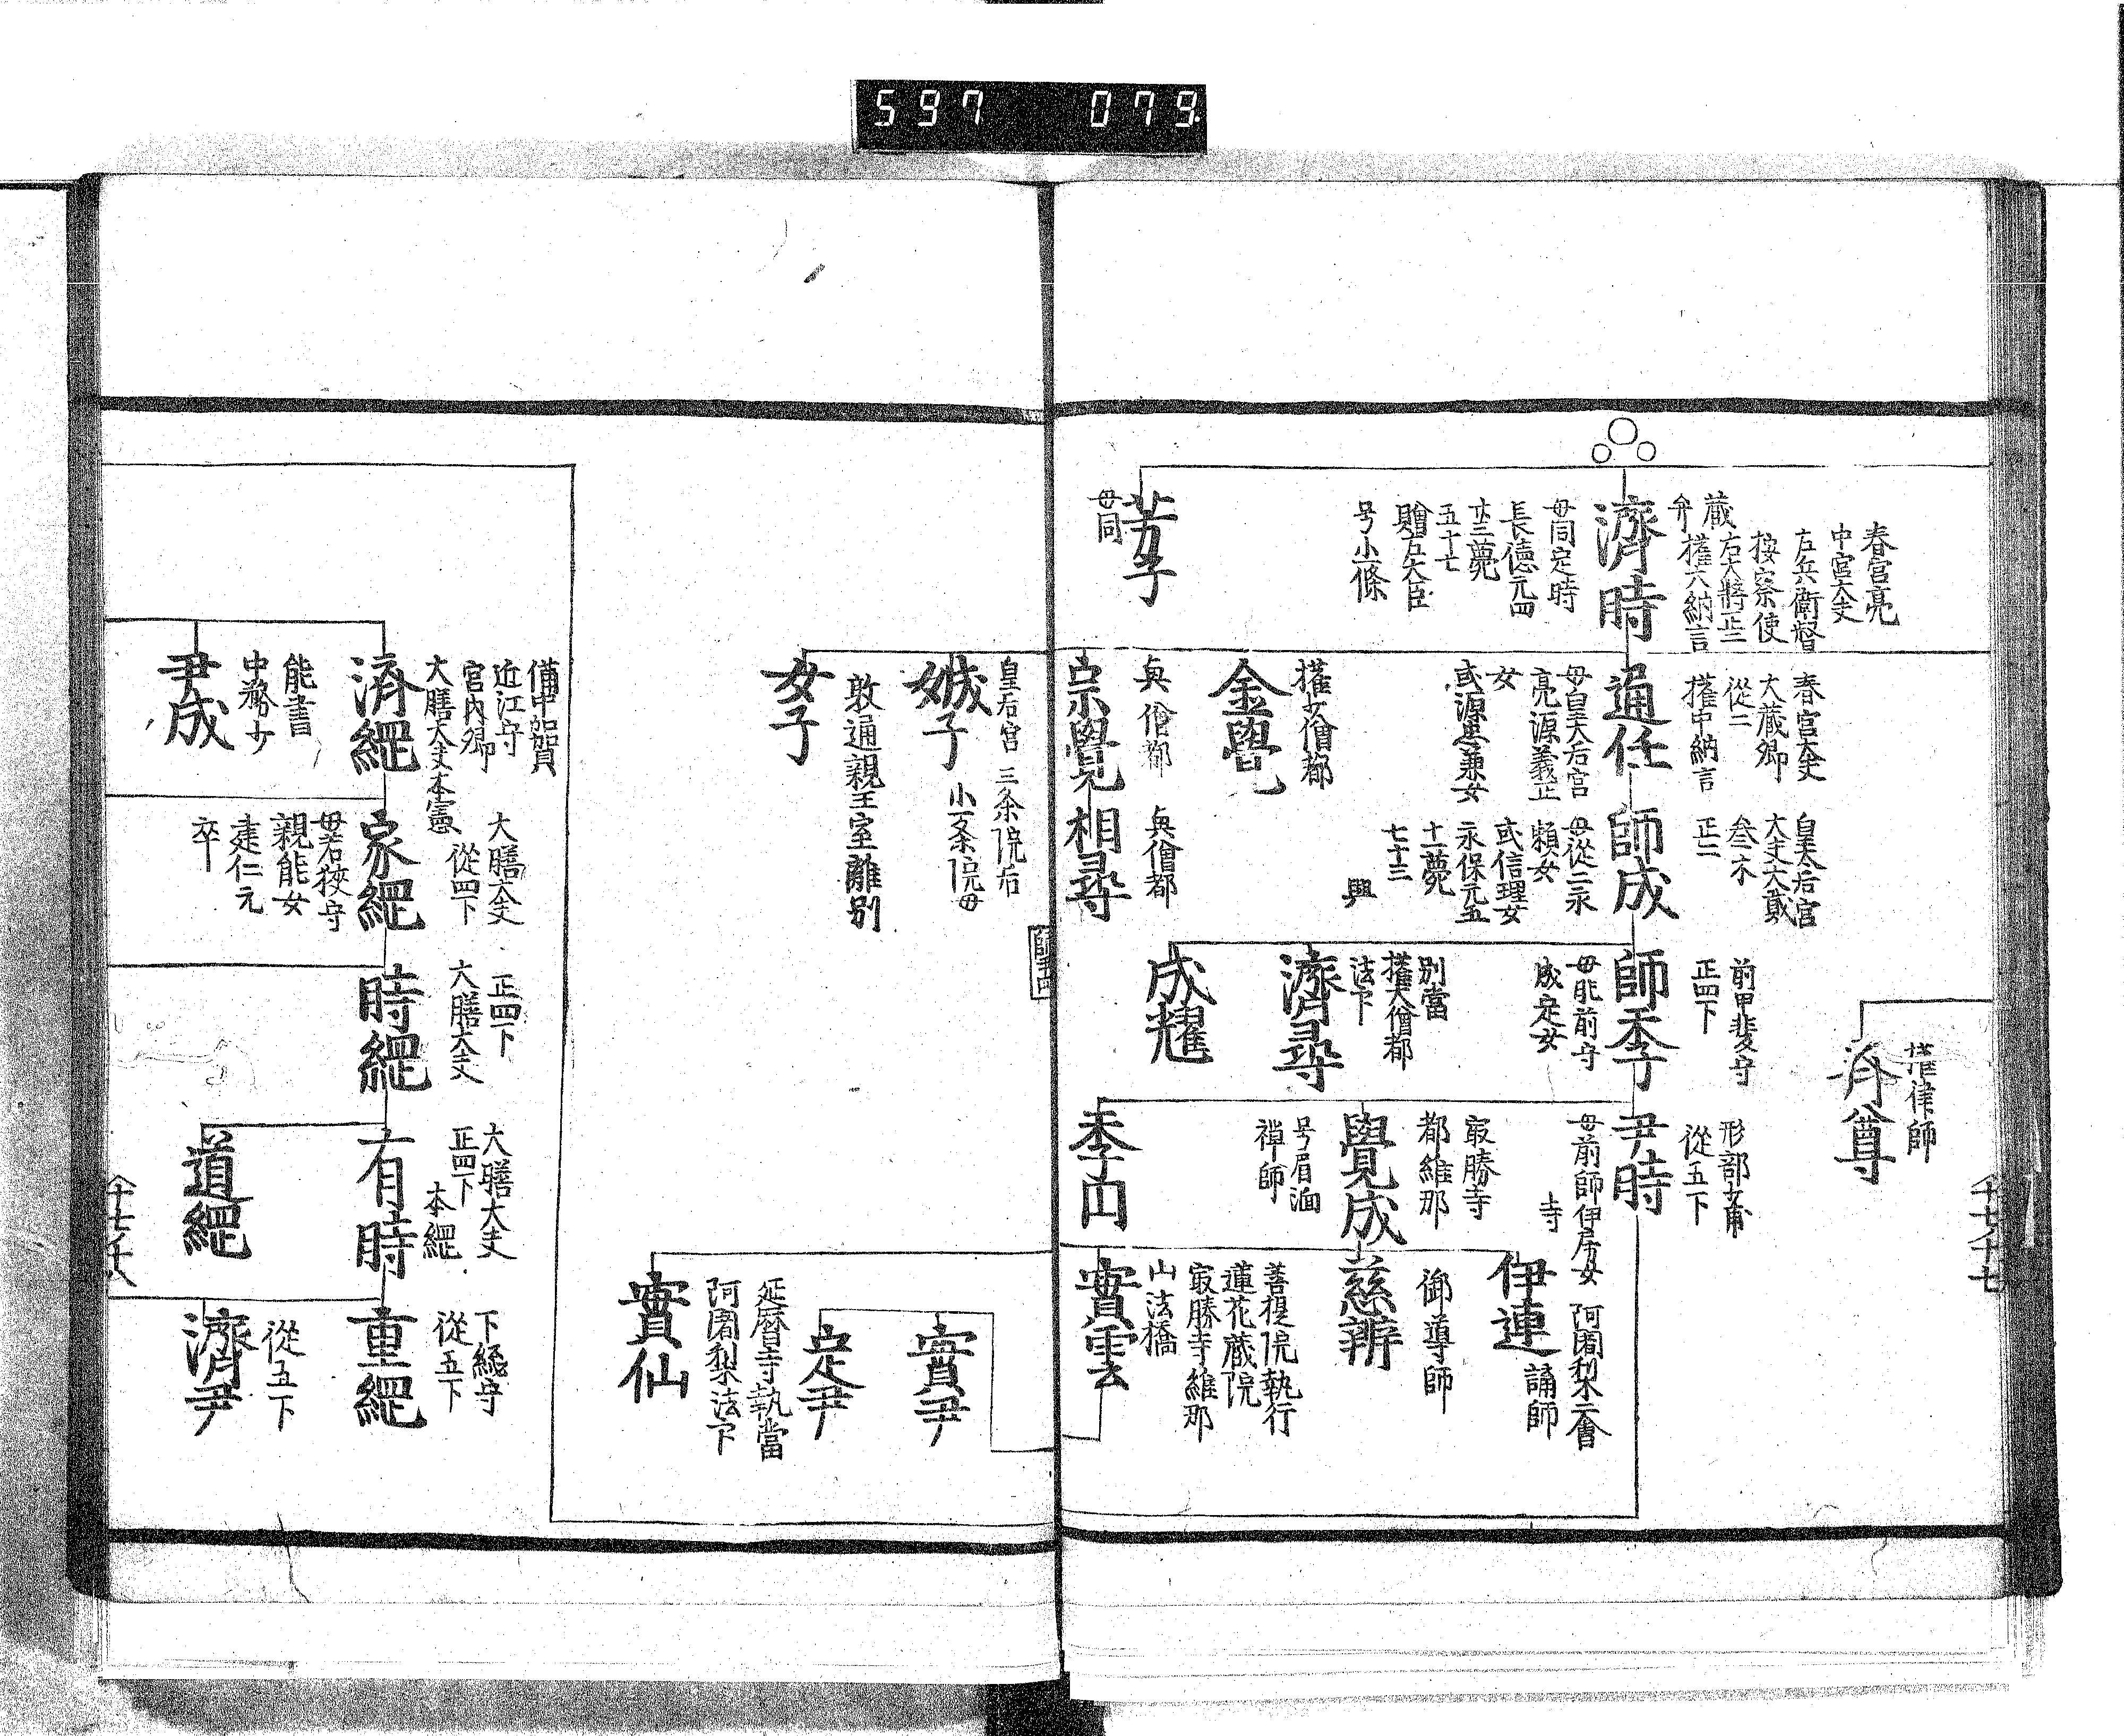 597 079
春宮亮
中宮大夫
左兵衛督
按察使
蔵 右大将正二
弁 權大納言
濟時
母同定時
長德元四
廿三薨
五十七
贈右大臣
号小一條
芳子
母同
春宮大夫
大蔵卿
從二
權中納言
通任
母皇太后宮
亮源義正
女
或源忠兼女
權少僧都
金覺
興僧都
宗覺
皇后宮 三条院后
娍子 小一条院母
敦通親王室離別
女子
皇太后宮
大夫大貳
參木
正二
師成
母從二永
頼女
或信理女
永保元五
十一薨
七十三
興
興僧都
相尋
前甲斐守
正四下
師季
母肥前守
成定女
別當
權大僧都
法下
濟尋
成耀
權律師
濟尊
千七ノ千七
形部少甫
從五下
尹時
母前師伊房女
寺
冣勝寺
都維那
覺成
号眉湎
禅師
季円
阿闍梨二會
誦師
伊連
御導師
慈辨
菩提院執行
蓮花蔵院
冣勝寺維那
山法橋
實雲
師尹四
實尹
定尹
延暦寺執當
阿闍梨法下
實仙
備中加賀
近江守
宮内卿
大膳大夫本憲
済經
能書
中務少
尹成
大膳大夫
從四下
家經
母若狹守
親能女
建仁元
卒
正四下
大膳大夫
時經
大膳大夫
正四下
本經
有時
道經
下総守
從五下
重經
從五下
濟尹
千七ノ千八